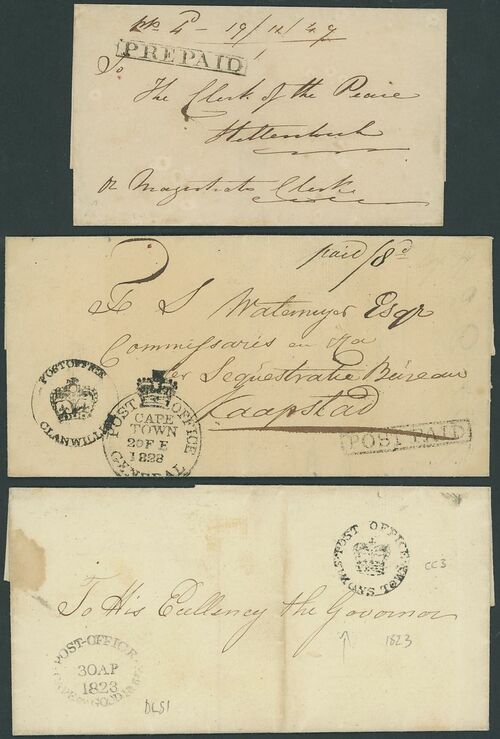 pp 4d - 19/12/49
PREPAID
To
The Clerk of the Peace
Stellenbosch
or Magistrates Clerk
paid/8d
To S Watermeyer Esqr
Commissaris en
der Sequestratie Bureau
Kaapstad
POST OFFICE
CLANWILLIAM
POST OFFICE
CAPE
TOWN
29 FE
1828
GENERAL
POST PAID
POST OFFICE
TOWN
CC3
To His Excellency the Govornor
1823
POST-OFFICE
30 AP
1823
CAPE OF GOOD HOPE
DLS1